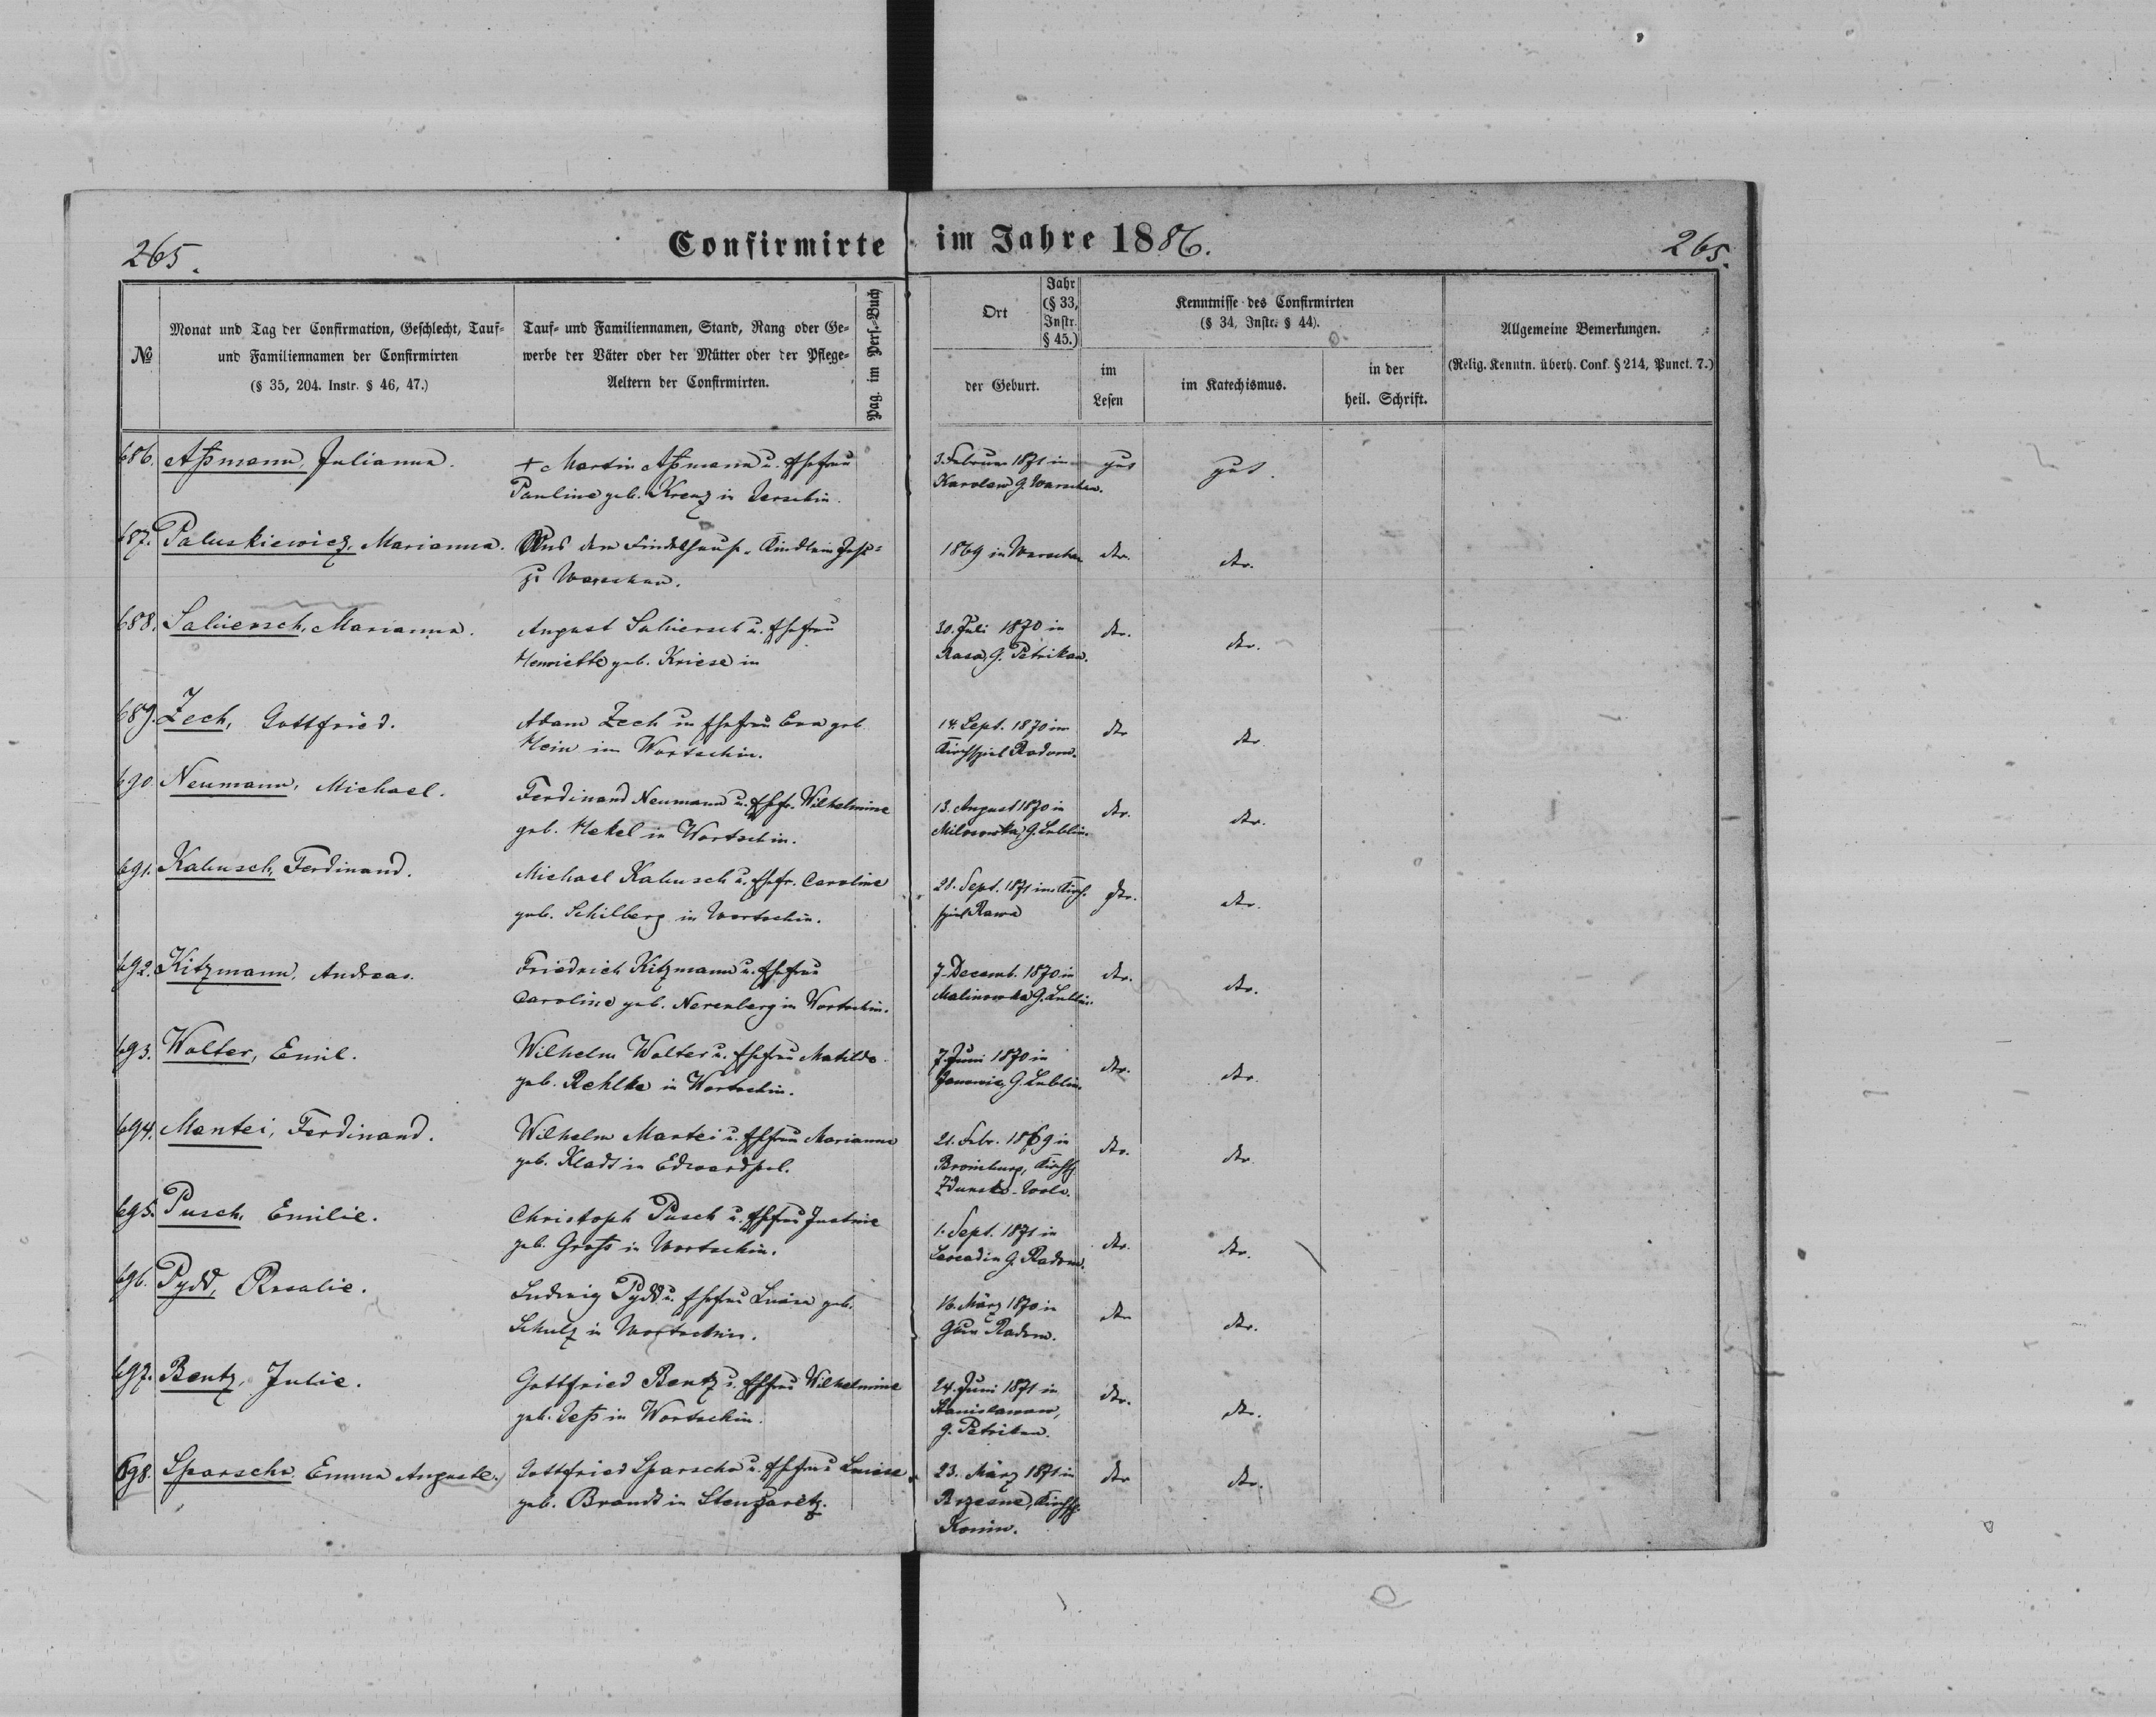 265.
Confirmirte im Jahre 1886.
265.
№
Monat und Tag der Confirmation, Geschlecht, Tauf-
und Familiennamen der Confirmirten
(§ 35, 204. Instr. § 46, 47.)
Tauf- und Familiennamen, Stand, Rang oder Ge-
werbe der Väter oder der Mütter oder der Pflege-
Aeltern der Confirmirten.
Pag. im Pers.-Buch
Ort
Jahr
(§ 33,
Instr.
§ 45.)
der Geburt.
Kenntnisse des Confirmirten
(§ 34, Instr. § 44).
im
Lesen
im Katechismus.
in der
heil. Schrift.
Allgemeine Bemerkungen.
(Relig. Kenntn. überh. Conf. § 214, Punct. 7.)
686. Aßmann, Julianna.
† Martin Aßmann u. Ehefrau
Pauline geb. Krenz in
3. Februar 1871 in
Karolew G. Warschau.
gut
gut.
687. Paluskiewicz, Marianna.
Aus dem Findelhause "Kindlein Jesu"
zu Warschau.
1869 in Warschau
dto.
dto.
688. Salwersch, Marianna.
August Salwersch u. Ehefrau
Henriette geb. Kriese in
30. Juli 1870 in
G. Petrikau.
dto.
dto.
689. Zech, Gottfried.
Adam Zech u. Ehefrau Eva geb.
Hein in Wortschin.
14. Sept. 1870 im
Kirchspiel Radom.
dto
dto
690. Neumann, Michael.
Ferdinand Neumann u. Ehefr. Wilhelmine
geb. Hekel in Wortschin.
13. August 1870 in
G. Lublin.
dto.
dto.
691. Kabusch, Ferdinand.
Michael Kabusch u. Ehefr. Caroline
geb. Schilberg in Wortschin.
28. Sept. 1871 im Kirch-
spiel Rawa
dto.
dto.
692. Kitzmann, Andreas.
Friedrich Kitzmann u. Ehefrau
Caroline geb. Nerenberg in Wortschin.
7. Decemb. 1870 in
Malinowka G. Lublin.
dto.
dto.
693. Walter, Emil.
Wilhelm Walter u. Ehefrau Matilde
geb. Rehlke in Wortschin.
7. Juni 1870 in
Janowic, G. Lublin.
dto.
dto.
694. Mantei, Ferdinand.
Wilhelm Mantei u. Ehefrau Marianne
geb. Kladt in Edwardpol.
21. Febr. 1869 in
Kirchsp.
Zdunsko-Wola.
dto.
dto
695. Pusch, Emilie.
Christoph Pusch u. Ehefrau Justine
geb. Groß in Wortschin.
1. Sept. 1871 in
Leocadin G. Radom.
dto.
dto.
696. Pydd, Rosalie.
Ludwig Pydd u. Ehefrau Luise geb.
Schulz in Wortschin.
16. März 1870 in
Guv Radom.
dto
dto.
697. Bentz, Julie.
Gottfried Bentz u. Ehefrau Wilhelmine
geb. in Wortschin.
24. Juni 1871 in
Stanislawow,
G. Petrikau.
dto.
dto.
698. Sparschu Emma Auguste.
Gottfried Sparschu u. Ehefrau Luise
geb. Brandt in Stenzaretz.
23. März 1871 in
Rzesne, Kirchsp.
Konin.
dto
dto.